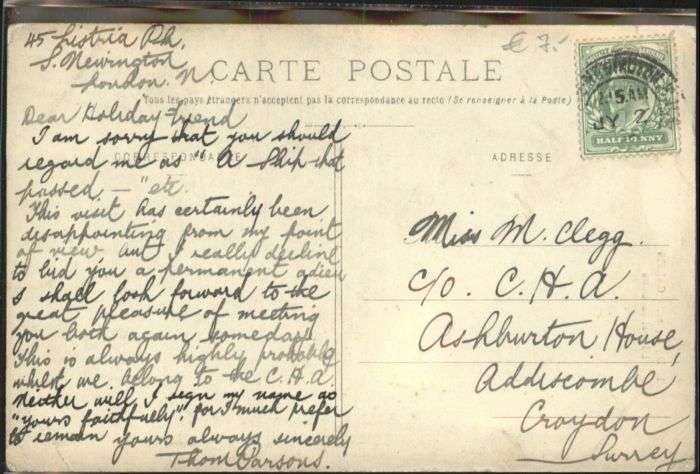 45 Listria Pk.
S. Newington
London. N.
€ 7.-
CARTE POSTALE
Tous les pays étrangers n'acceptent pas la correspondance au recto (Se renseigner à la Poste)
CORRESPONDANCE
ADRESSE
Dear Holiday-Friend
I am sorry that you should
regard me as " A Ship that
passed — " etc.
This visit has certainly been
disappointing from my point
of view but I really decline
to bid you a permanent adieu
I shall look forward to the
great pleasure of meeting
you both again someday.
This is always highly probable
whilst we belong to the C.H.A.
Neither will I sign my name as
"yours faithfully". for I much prefer
to remain yours always sincerely
Thom Parsons.
5 AM
JY 7
HALFPENNY
Miss M. Clegg.
c/o. C. H. A.
Ashburton House,
Addiscombe,
Croydon
Surrey